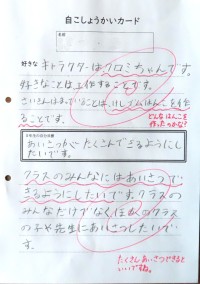 自こしょうかいカード
名前
好きな キャラクターはクロミちゃんです。
好きなことは工作することです。
さいきんはまっていることは、けしゴムはんこを作
ることです。
どんなはんこを
作ったのかな?
あいさつがたくさんできるようにし
たいです。
クラスのみんなにはあいさつで
きるようにしたいです。クラスの
みんなだけでなく、ほかのクラス
の子や先生にあいさつしたいで
す。
たくさんあいさつできると
いいですね。